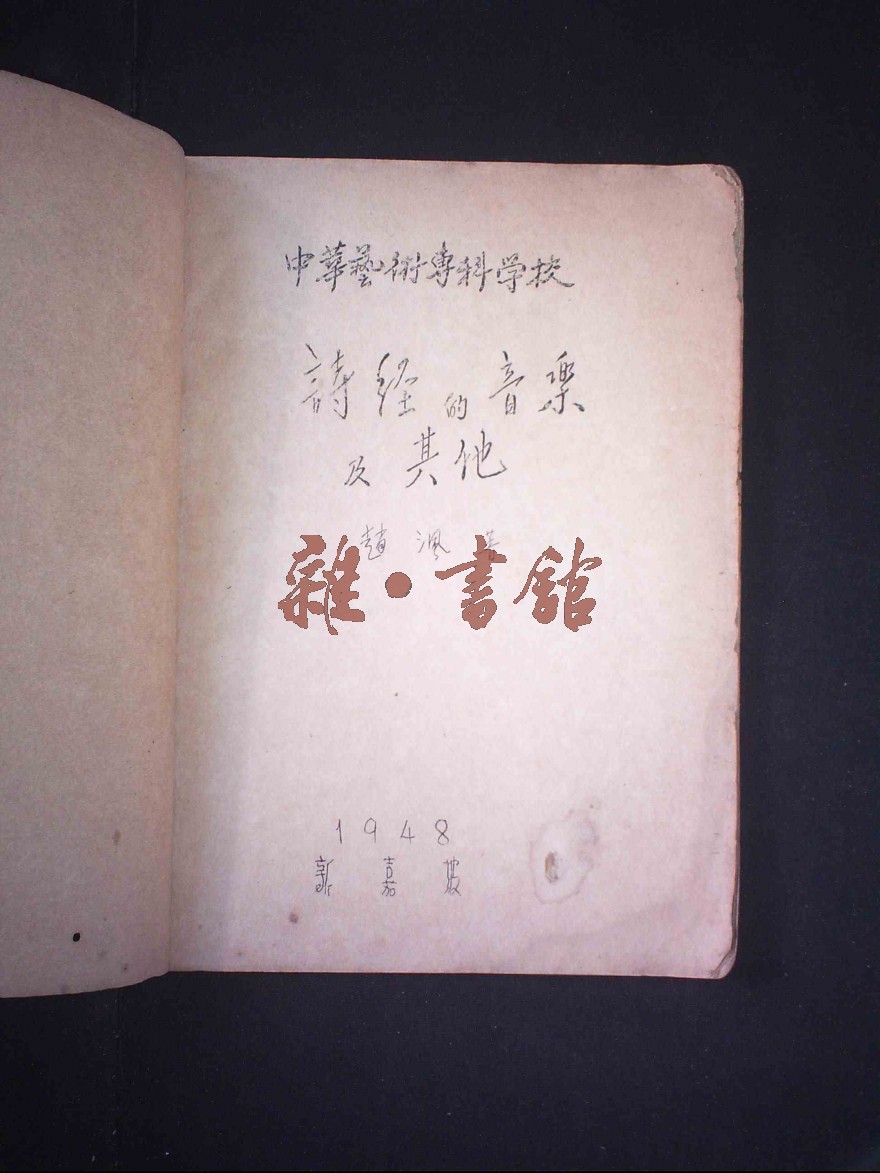 中華藝術専科学校
詩经的音楽
及其他
趙沨
雜·書館
1948
新嘉坡